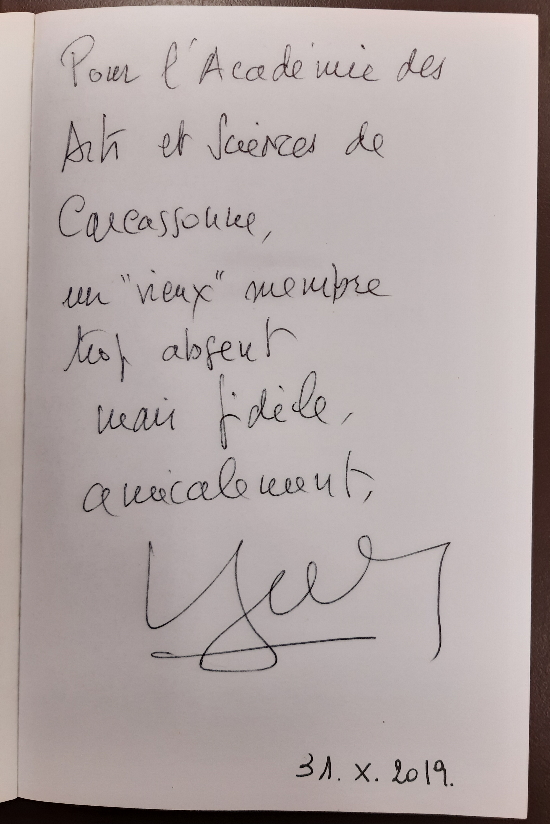 Pour l'Académie des
Arts et Sciences de
Carcassonne,
un "vieux" membre
trop absent
mais fidèle,
amicalement,
31. X. 2019.